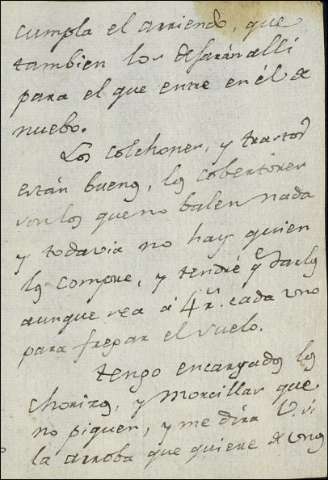 cumpla el arriendo, que
tambien los dejarán alli
para el que entre en él de
nuebo.
Los colchones, y trastos
están buenos, los cobertores
son los que no balen nada
y todavia no hay quien
los compre, y tendré qe darlos
aunque sea á 4 rs. cada uno
para fregar el suelo.
tengo encargados los
chorizos, y morcillas que
no piquen, y me dirá V. si
la arroba que quiere de unos